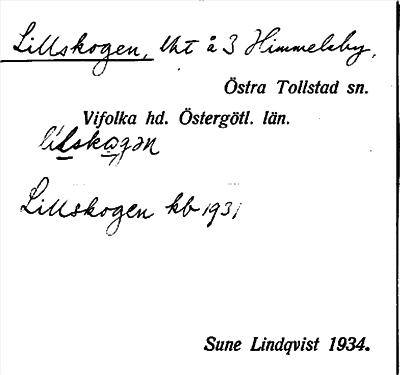 Lillskogen, lht å 3 Himmelsby,
Östra Tollstad sn.
Vifolka hd. Östergötl. län.
Lillskogen kb 1931
Sune Lindqvist 1934.